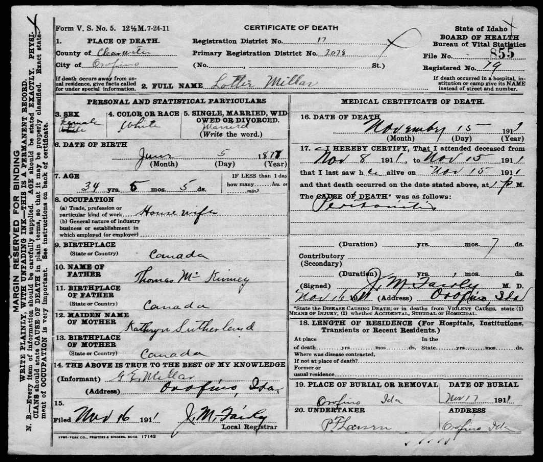 Form V. S. No. 5. 12½M. 7-24-11
CERTIFICATE OF DEATH
State of Idaho
BOARD OF HEALTH
Bureau of Vital Statistics
1. PLACE OF DEATH.
County of Clearwater
City of Orofino
Registration District No. 17
Primary Registration District No. 2078
(No. St.)
File No. 855
Registered No. 79
If death occurs away from usual residence, give facts called for under special information.
2. FULL NAME Lottie Millar
If death occurred in a hospital, institution or camp give its NAME instead of street and number.
MARGIN RESERVED FOR BINDING
WRITE PLAINLY, WITH UNFADING INK—THIS IS A PERMANENT RECORD.
N. B.—Every item of information should be carefully supplied. AGE should be stated EXACTLY. PHYSICIANS should state CAUSE OF DEATH in plain terms, so that it may be properly classified. Exact statement of OCCUPATION is very important. See instructions on back of certificate.
PERSONAL AND STATISTICAL PARTICULARS
3. SEX
Female
4. COLOR OR RACE
White
5. SINGLE, MARRIED, WIDOWED OR DIVORCED.
Married
(Write the word.)
6. DATE OF BIRTH
June 5 1877
(Month) (Day) (Year)
7. AGE
34 yrs. 5 mos. 5 ds.
IF LESS than 1 day
how many hrs. or min.
8. OCCUPATION
(a) Trade, profession or particular kind of work Housewife
(b) General nature of industry business or establishment in which employed (or employer)
9. BIRTHPLACE
(State or Country) Canada
10. NAME OF FATHER
Thomas McKinney
11. BIRTHPLACE OF FATHER
(State or Country) Canada
12. MAIDEN NAME OF MOTHER
Kathryn Sutherland
13. BIRTHPLACE OF MOTHER
(State or Country) Canada
14. THE ABOVE IS TRUE TO THE BEST OF MY KNOWLEDGE
(Informant) G. E. Millar
(Address) Orofino, Ida.
15.
Filed Nov 16 1911 J. M. Fairly
Local Registrar
MEDICAL CERTIFICATE OF DEATH.
16. DATE OF DEATH
November 15 1911
(Month) (Day) (Year)
17. I HEREBY CERTIFY, That I attended deceased from
Nov 8 1911 to Nov 15 1911
that I last saw her alive on Nov 15 1911
and that death occurred on the date stated above, at 1 P m.
The CAUSE OF DEATH* was as follows:
Peritonitis
(Duration) yrs. mos. 7 ds.
Contributory
(Secondary)
(Duration) yrs. mos. ds.
(Signed) J. M. Fairly M. D.
Nov 16 1911 (Address) Orofino Ida
*State the Disease Causing Death, or in deaths from Violent Causes, state (1) Means of Injury, (2) whether Accidental, Suicidal or Homicidal.
18. LENGTH OF RESIDENCE (For Hospitals, Institutions, Transients or Recent Residents.)
At place of death yrs. mos. days. In the State yrs. mos. ds.
Where was disease contracted, if not at place of death?
Former or usual residence
19. PLACE OF BURIAL OR REMOVAL
Orofino Ida
DATE OF BURIAL
Nov 17 1911
20. UNDERTAKER
ADDRESS
Orofino Ida